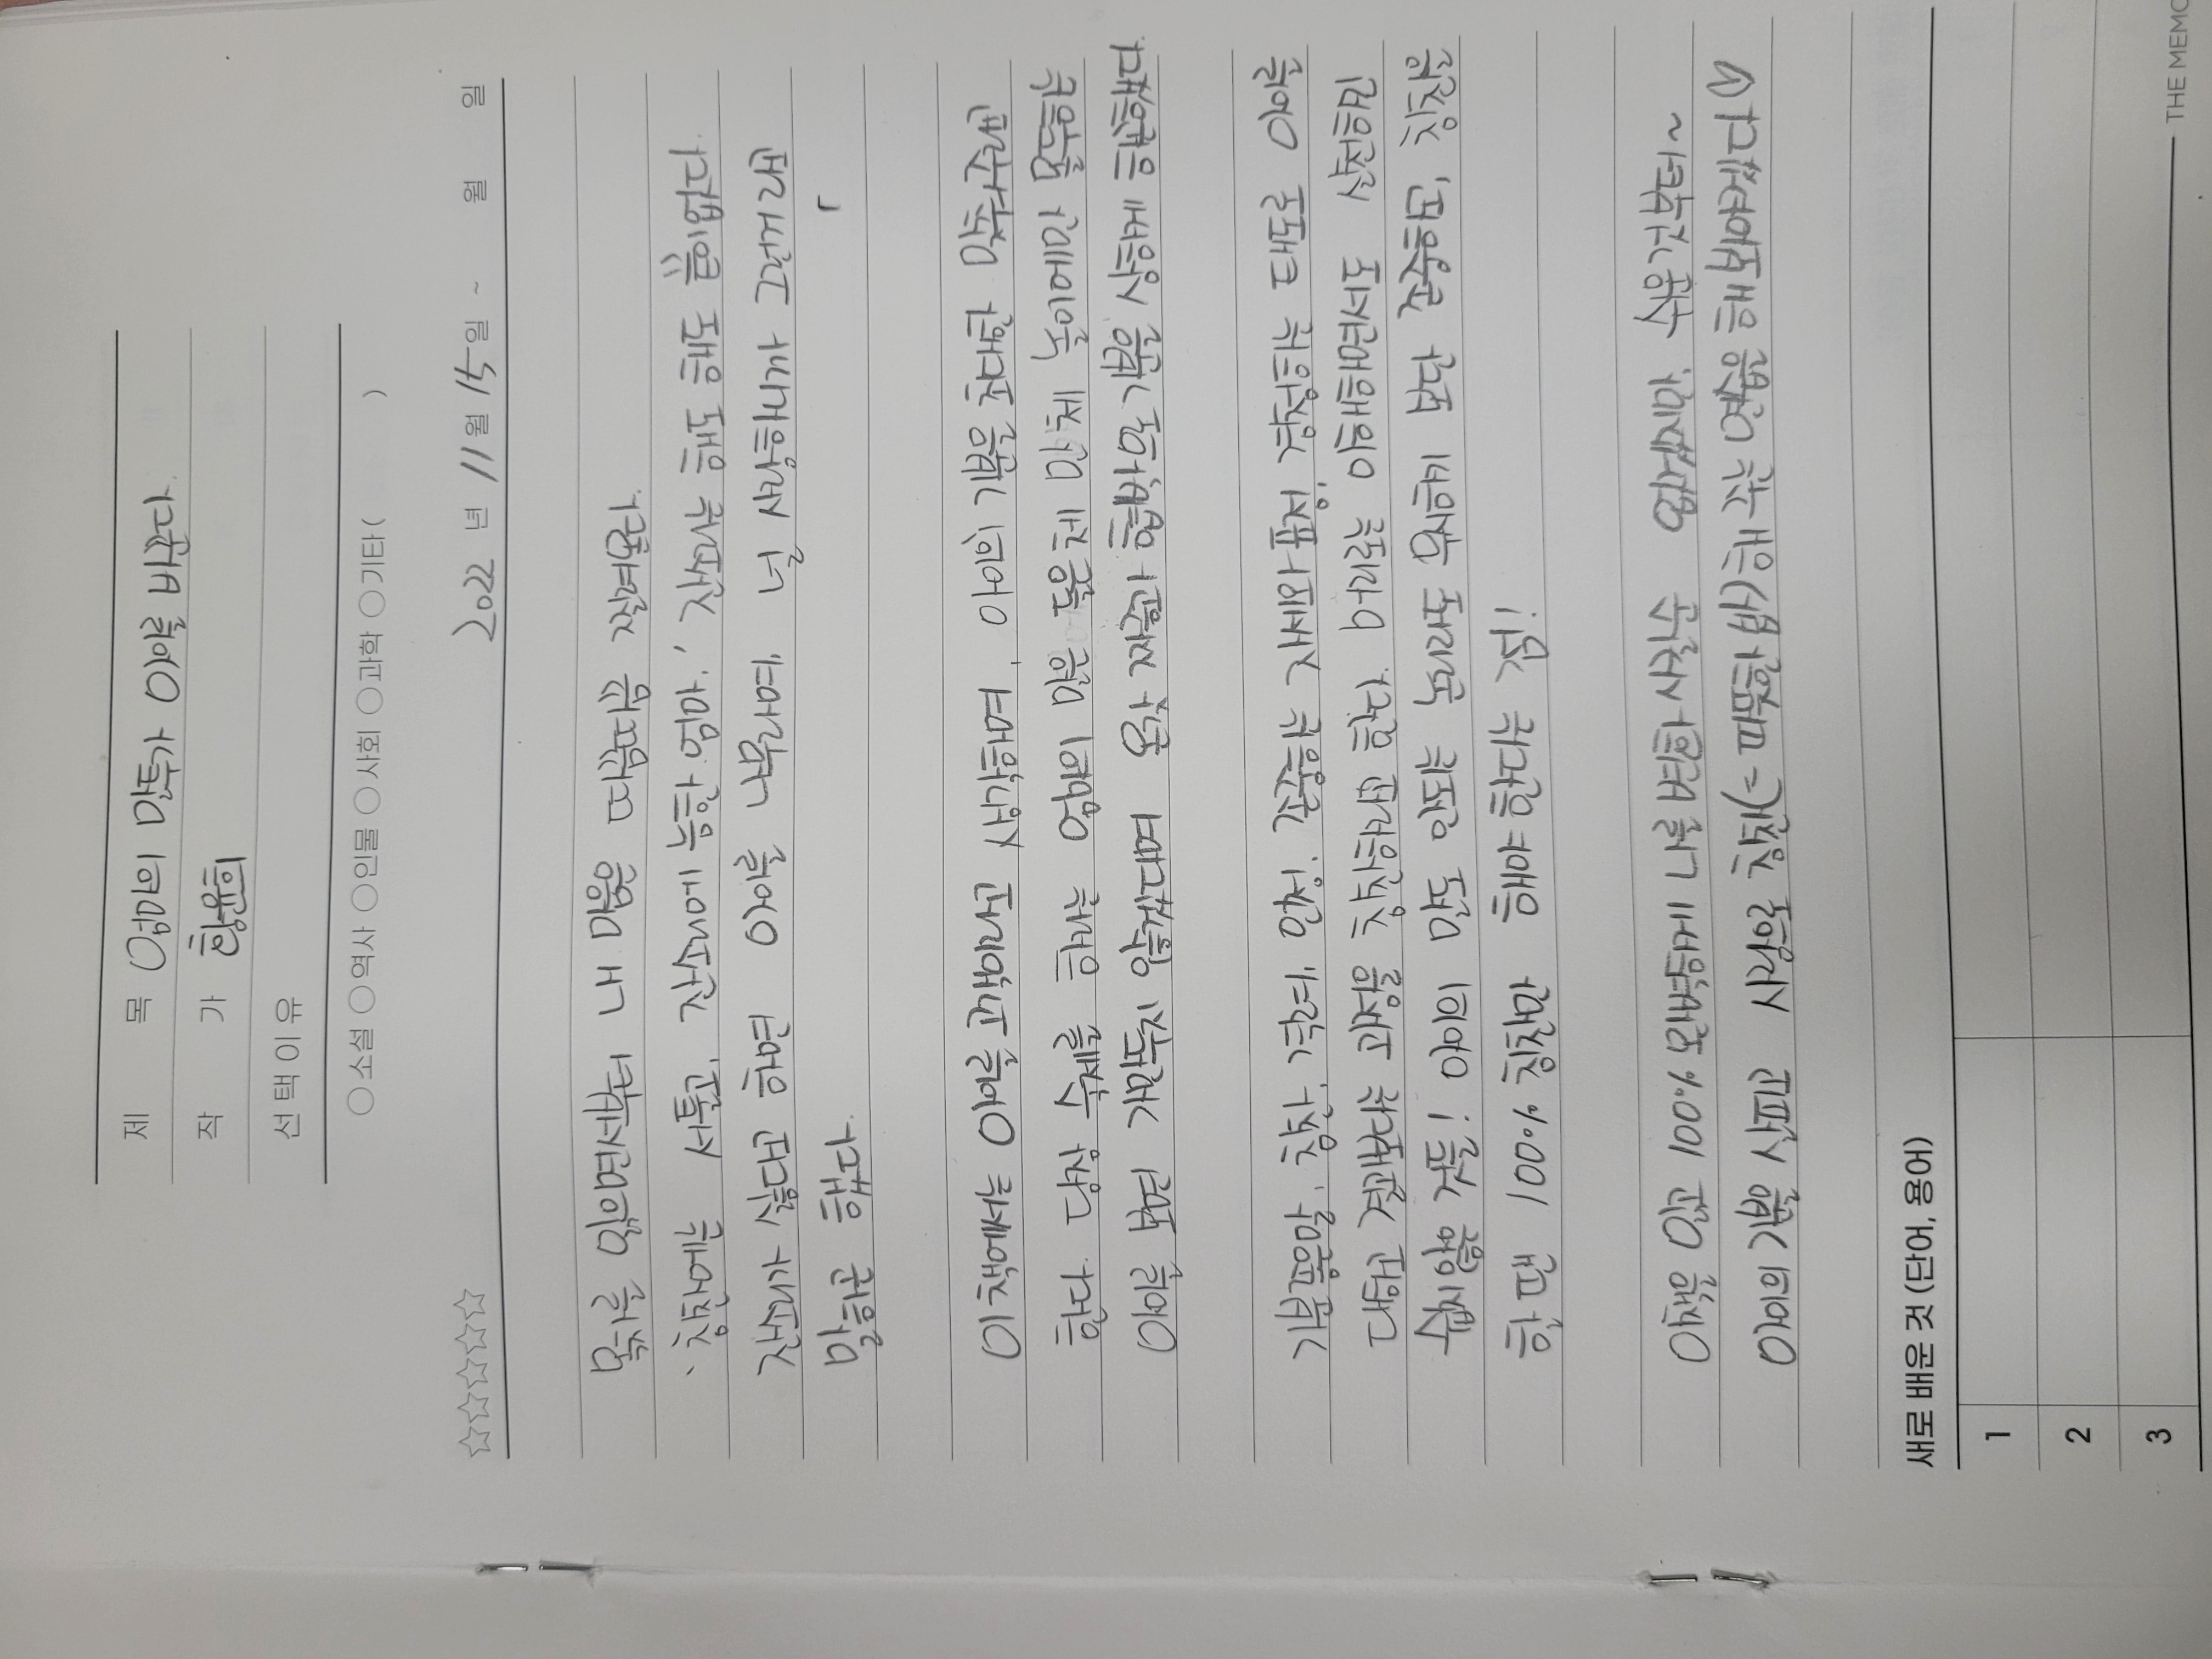 제 목 엄마의 말투가 아이를 바꾼다.
작 가 황윤희
선택이유
○소설 ○역사 ○인물 ○사회 ○과학 ○기타( )
☆☆☆☆☆ 2022 년 11월 15일 ~ 월 일
목차를 읽으면서부터 내 마음은 따끔따끔 찔려온다.
'칭찬에는 서툴고, 잔소리에 능한 엄마.' 잔소리는 해도 해도 끝이없다.
잔소리가 싫다고 하면 아이를 나무라며, 널 사랑하니까 그런거라고
말하곤 했다.
이 책에서는 아이를 고객이라고 생각하며, 아이의 기분을 최대한 맞춰주라고
한다. 당장 숙제를 하라는 엄마의 말은 들은체 만체 놀이에만 몰두하는
아이를 보면 가만두지 않겠다며 온갖 짜증과 협박으로 기분을 상하게 하곤했다.
기분좋은말, 칭찬, 격려, 인정, 존중하는 자세와 표정, 경청하는 태도로 아이를
대하고 결과보다는 과정을 칭찬하라고 한다. 머리로는 이해하면서도 실천하긴
쉽지않은 것들! 아이의 말도 안되는 논리라도 무시하기 보단 존중하고, 칭찬을
할 땐 100% 칭찬만 해야한다는 점!
이책을 읽고 100% 완벽하게 나를 변화 시킬순 없겠지만, 쉬운것부터~
아이의 기분을 살피고 사랑으로 칭찬(= 따뜻한 밥)해 주는 연습을 해봐야겠다♡
새로 배운 것 (단어, 용어)
1
2
3
THE MEMO